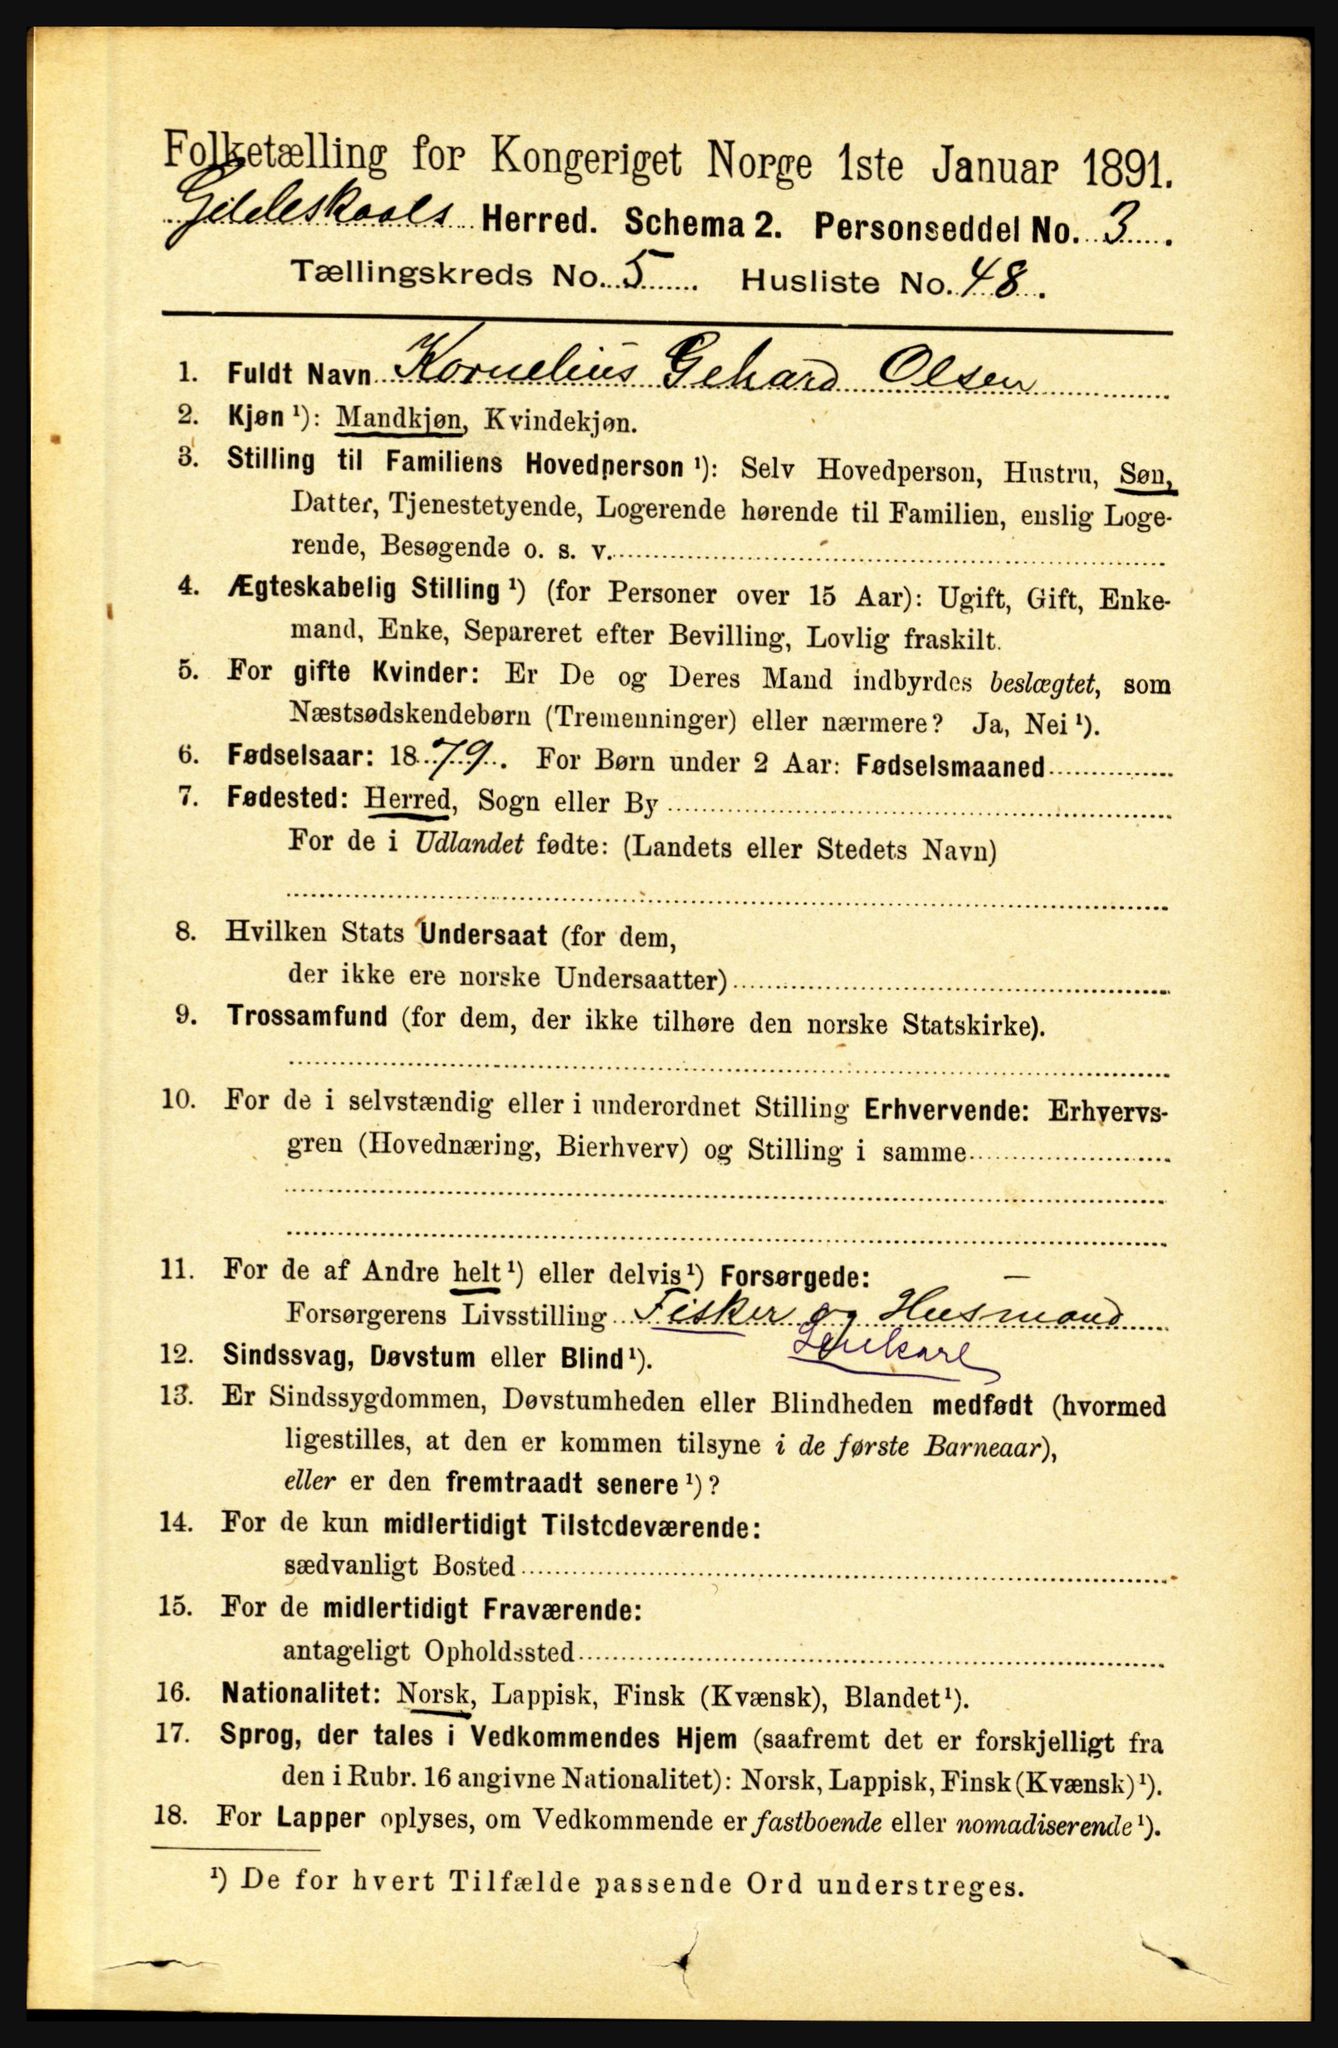 Folketælling for Kongeriget Norge 1ste Januar 1891.
Gildeskaals Herred. Schema 2. Personseddel No. 3.
Tællingskreds No. 5. Husliste No. 48.
1. Fuldt Navn Kornelius Gehard Olsen
2. Kjøn ¹): Mandkjøn, Kvindekjøn.
3. Stilling til Familiens Hovedperson ¹): Selv Hovedperson, Hustru, Søn,
Datter, Tjenestetyende, Logerende hørende til Familien, enslig Loge-
rende, Besøgende o. s. v.
4. Ægteskabelig Stilling ¹) (for Personer over 15 Aar): Ugift, Gift, Enke-
mand, Enke, Separeret efter Bevilling, Lovlig fraskilt.
5. For gifte Kvinder: Er De og Deres Mand indbyrdes beslægtet, som
Næstsødskendebørn (Tremenninger) eller nærmere? Ja, Nei ¹).
6. Fødselsaar: 1879. For Børn under 2 Aar: Fødselsmaaned
7. Fødested: Herred, Sogn eller By
For de i Udlandet fødte: (Landets eller Stedets Navn)
8. Hvilken Stats Undersaat (for dem,
der ikke ere norske Undersaatter)
9. Trossamfund (for dem, der ikke tilhøre den norske Statskirke).
10. For de i selvstændig eller i underordnet Stilling Erhvervende: Erhvervs-
gren (Hovednæring, Bierhverv) og Stilling i samme
11. For de af Andre helt ¹) eller delvis ¹) Forsørgede:
Forsørgerens Livsstilling Fisker og Husmand
12. Sindssvag, Døvstum eller Blind ¹).
13. Er Sindssygdommen, Døvstumheden eller Blindheden medfødt (hvormed
ligestilles, at den er kommen tilsyne i de første Barneaar),
eller er den fremtraadt senere ¹)?
14. For de kun midlertidigt Tilstedeværende:
sædvanligt Bosted
15. For de midlertidigt Fraværende:
antageligt Opholdssted
16. Nationalitet: Norsk, Lappisk, Finsk (Kvænsk), Blandet ¹).
17. Sprog, der tales i Vedkommendes Hjem (saafremt det er forskjelligt fra
den i Rubr. 16 angivne Nationalitet): Norsk, Lappisk, Finsk (Kvænsk) ¹).
18. For Lapper oplyses, om Vedkommende er fastboende eller nomadiserende ¹).
¹) De for hvert Tilfælde passende Ord understreges.